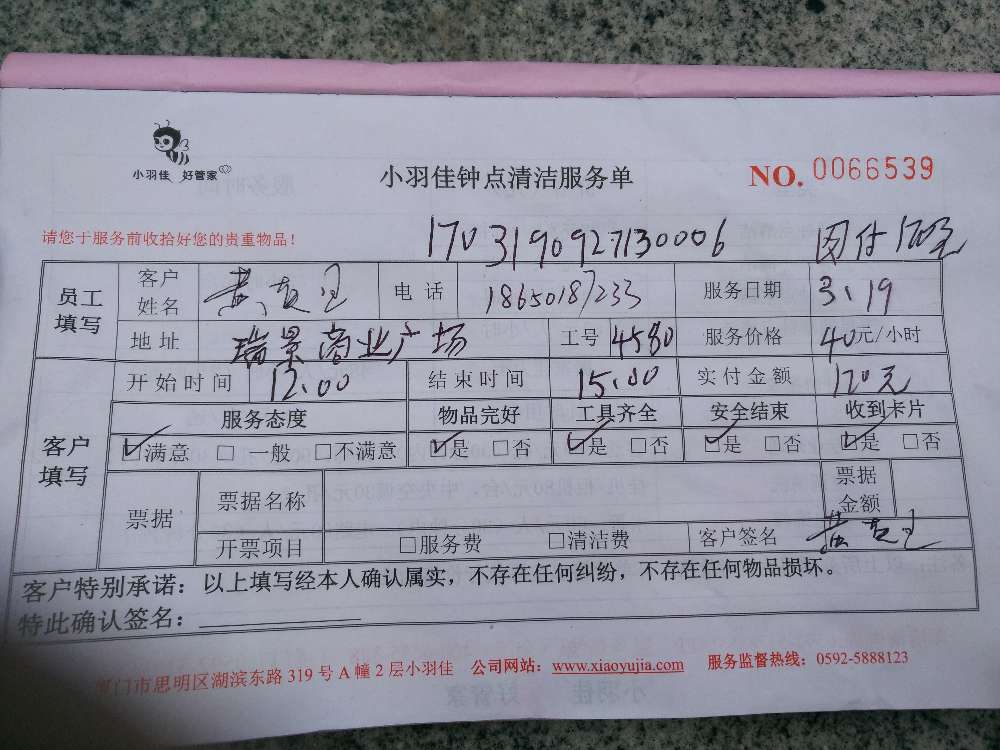 小羽佳 好管家
小羽佳钟点清洁服务单
NO. 0066539
请您于服务前收拾好您的贵重物品！
1703190927130006 团付120元
员工填写 客户姓名 电话 18650187233 服务日期 3.19
地址 瑞景商业广场 工号 4580 服务价格 40元/小时
客户填写 开始时间 12.00 结束时间 15.00 实付金额 120元
服务态度 物品完好 工具齐全 安全结束 收到卡片
☑满意 □一般 □不满意 ☑是 □否 ☑是 □否 ☑是 □否 ☑是 □否
票据 票据名称 票据金额
开票项目 □服务费 □清洁费 客户签名
客户特别承诺：以上填写经本人确认属实，不存在任何纠纷，不存在任何物品损坏。
特此确认签名：
厦门市思明区湖滨东路 319 号 A 幢 2 层小羽佳 公司网站：www.xiaoyujia.com 服务监督热线：0592-5888123